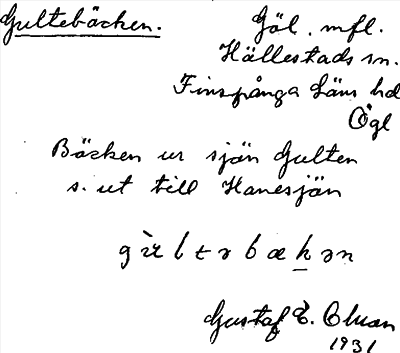 Gultebäcken.
Göl. mfl.
Hällestads sn.
Finspånga läns hd
Ögl
Bäcken ur sjön Gulten
s. ut till Hanesjön
gùltəbækən
Gustaf E.
1931